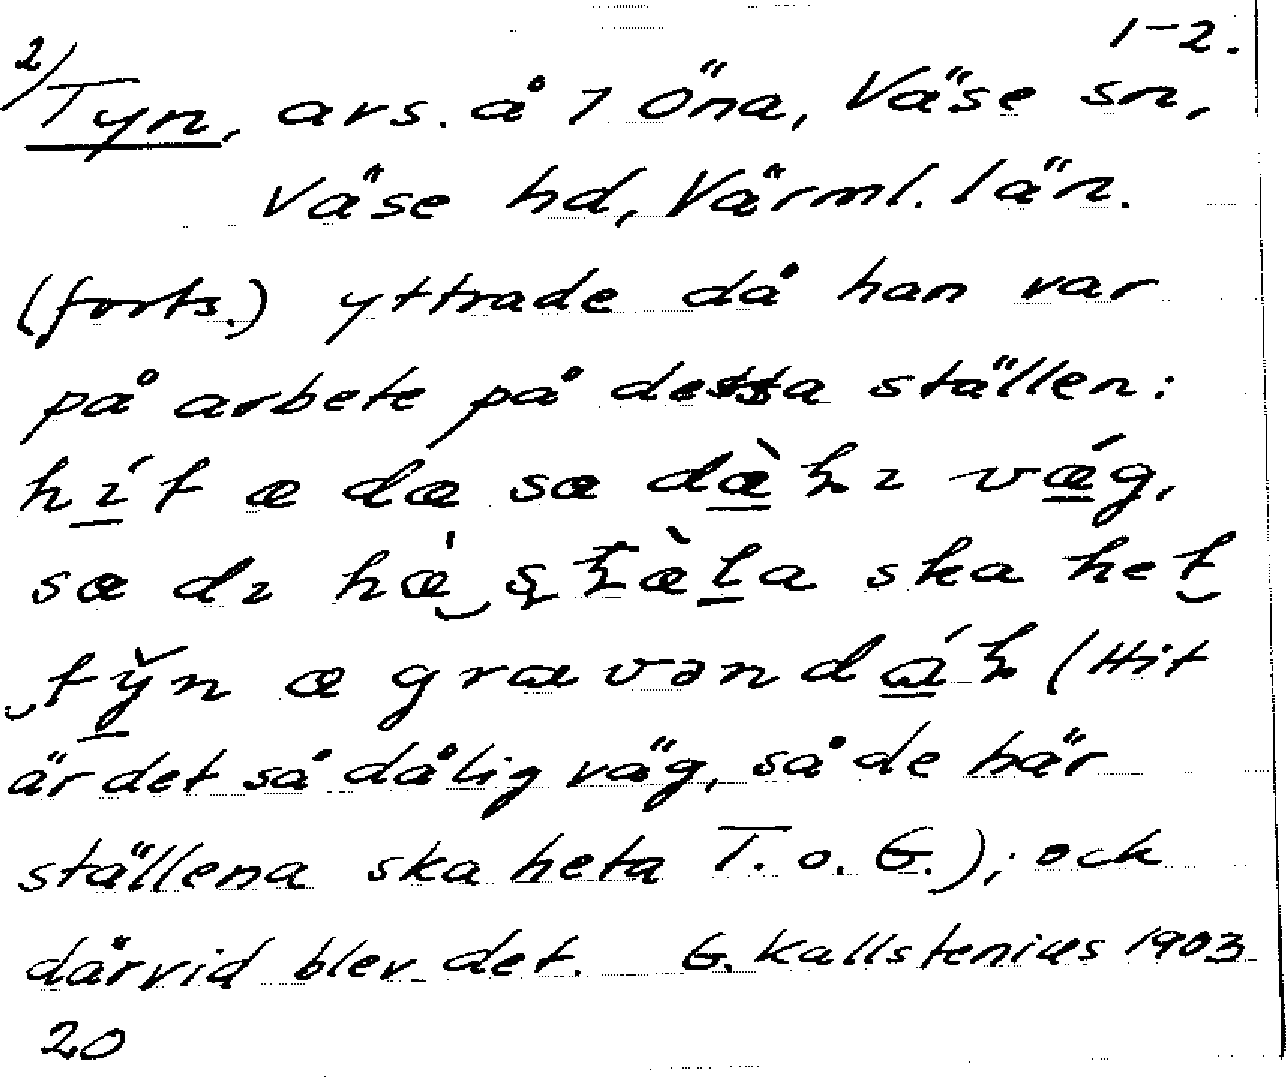 1-2.
2/
Tyn, avs. å i Öna, Väse sn,
Väse hd, Värml. län.
(forts.) yttrade då han var
på arbete på dessa ställen:
hít æ dæ sæ dæ̀hı vǽg,
sæ dı hæ̀ ska het
tyn æ grævəndáh (Hit
är det så dålig väg, så de här
ställena ska heta T. o. G.); och
därvid blev det. G. Kallstenius 1903
20